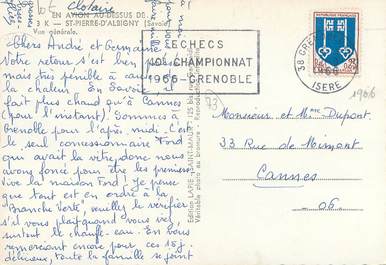 Clotaire
EN AVION AU-DESSUS DE...
3 K — ST-PIERRE-D'ALBIGNY (Savoie)
Vue générale.
ECHECS
40e CHAMPIONNAT
1966-GRENOBLE
38 GRE
1966
ISERE
REPUBLIQUE FRANCAISE
1966
73
Chers André et Germaine
Votre retour s'est bien
mais très pénible à cause
la chaleur. En Savoie il
fait plus chaud qu'à Cannes
(pour l'instant). Sommes à
Grenoble pour l'après-midi. C'est
le seul concessionnaire Ford
qui avait la vitre, donc nous
avons foncé pour être les premiers
vive la maison Ford! Je pense
que tout est en ordre à la
"Branche Verte", veuillez le vérifier
s'il vous plait quand vous y
surtout le chauffe-eau. En vous
remerciant encore pour ces 15 j.
délicieux, toute la famille se joint
Edition LAPIE - SAINT-MAUR
Véritable photo au bromure - Reproduction
Monsieur et Mme Dupont
33 Rue de Mimont
Cannes
06.